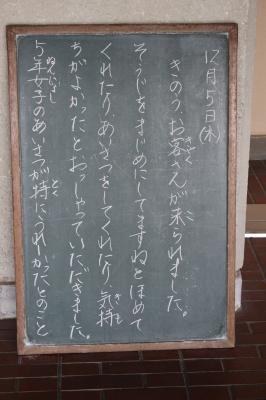 12月5日(木)
きのう、お客さんが来られました。
そうじをまじめにしてますねとほめて
くれたり、あいさつをしてくれたり、気持
ちがよかったとおっしゃっていただきました。
5年女子のあいさつが特にうれしかったとのこと